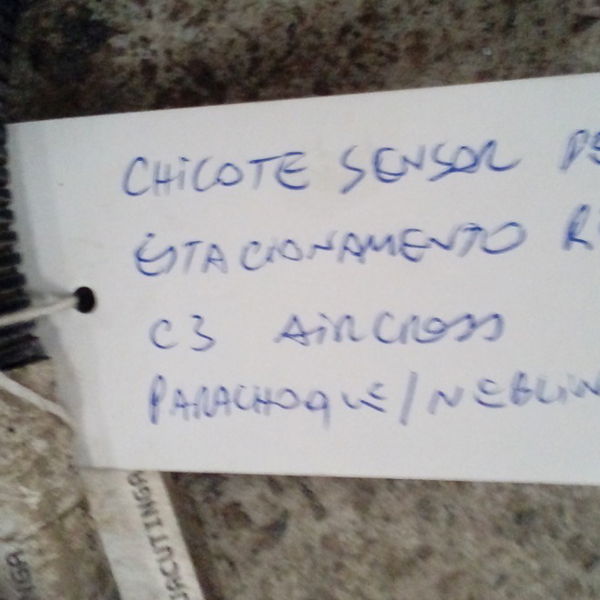 CHICOTE SENSOR
ESTACIONAMENTO
C3 AIRCROSS
PARACHOQUE/NEBLIN
JACUTINGA
NGA